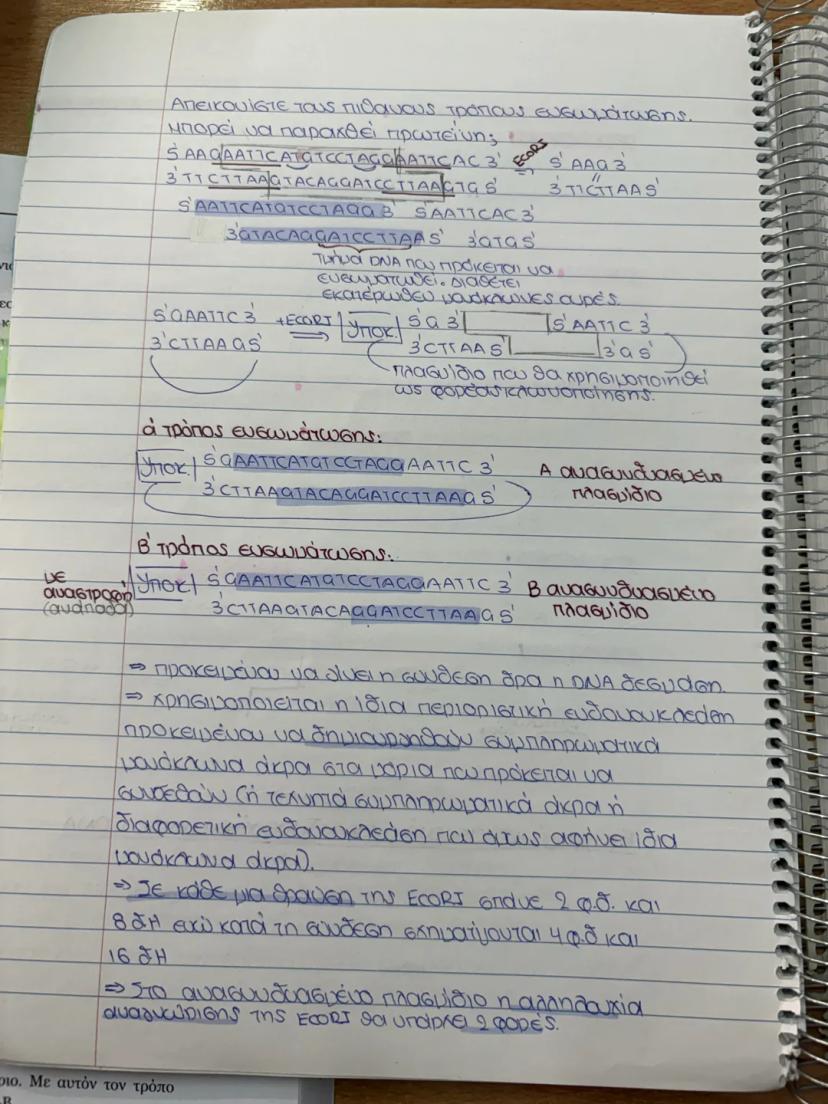 Απεικονίστε τους πιθανούς τρόπους ενσωμάτωσης.
Μπορεί να παραχθεί πρωτεΐνη;
5' AAGAATTCATGTCCTAGGAATTCAC 3' EcoRI 5' AAG 3'
3' TTCTTAAGTACAGGATCCTTAAGTG 5' 3' TTCTTAA 5'
5' AATTCATGTCCTAGG 3' 5' AATTCAC 3'
3' GTACAGGATCCTTAA 5' 3' GTG 5'
τμήμα DNA που πρόκειται να
ενσωματωθεί. Διαθέτει
εκατέρωθεν μονόκλωνες ουρές.
5' GAATTC 3' +EcoRI Υποκ. 5' G 3' 5' AATTC 3'
3' CTTAAG 5' 3' CTTAA 5' 3' G 5'
πλασμίδιο που θα χρησιμοποιηθεί
ως φορέας κλωνοποίησης.
α' τρόπος ενσωμάτωσης:
Υποκ. 5' GAATTCATGTCCTAGGAATTC 3' Α ανασυνδυασμένο
3' CTTAAGTACAGGATCCTTAAG 5' πλασμίδιο
Β' τρόπος ενσωμάτωσης:
με αναστροφή (ανάποδα) Υποκ 5' GAATTCATGTCCTAGGAATTC 3' Β ανασυνδυασμένο
3' CTTAAGTACAGGATCCTTAAG 5' πλασμίδιο
⇒ προκειμένου να γίνει η σύνθεση δρα η DNA δεσμάση.
⇒ χρησιμοποιείται η ίδια περιοριστική ενδονουκλεάση
προκειμένου να δημιουργηθούν συμπληρωματικά
μονόκλωνα άκρα στα μόρια που πρόκειται να
συνδεθούν (ή τεχνητά συμπληρωματικά άκρα ή
διαφορετική ενδονουκλεάση που όμως αφήνει ίδια
μονόκλωνα άκρα).
⇒ Σε κάθε μια θραύση της EcoRI σπάνε 2 φ.δ. και
8 δΗ ενώ κατά τη σύνδεση σχηματίζονται 4 φ.δ και
16 δΗ
⇒ Στο ανασυνδυασμένο πλασμίδιο η αλληλουχία
αναγνώρισης της EcoRI θα υπάρχει 2 φορές.
ριο. Με αυτόν τον τρόπο